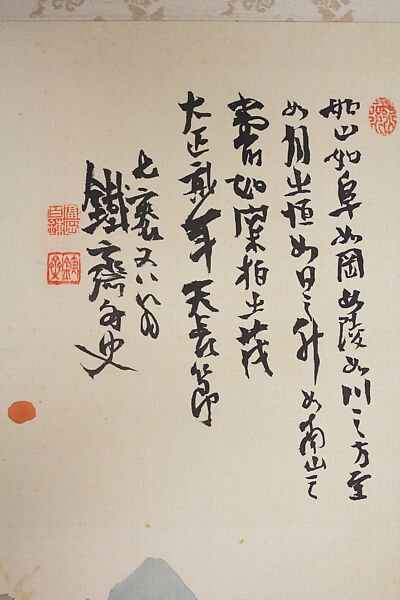 如山如阜如岡如陵如川之方至
如月之恒如日之升如南山之
壽如松柏之茂
大正貳年天長節
七袠又八翁
鐵齋外史